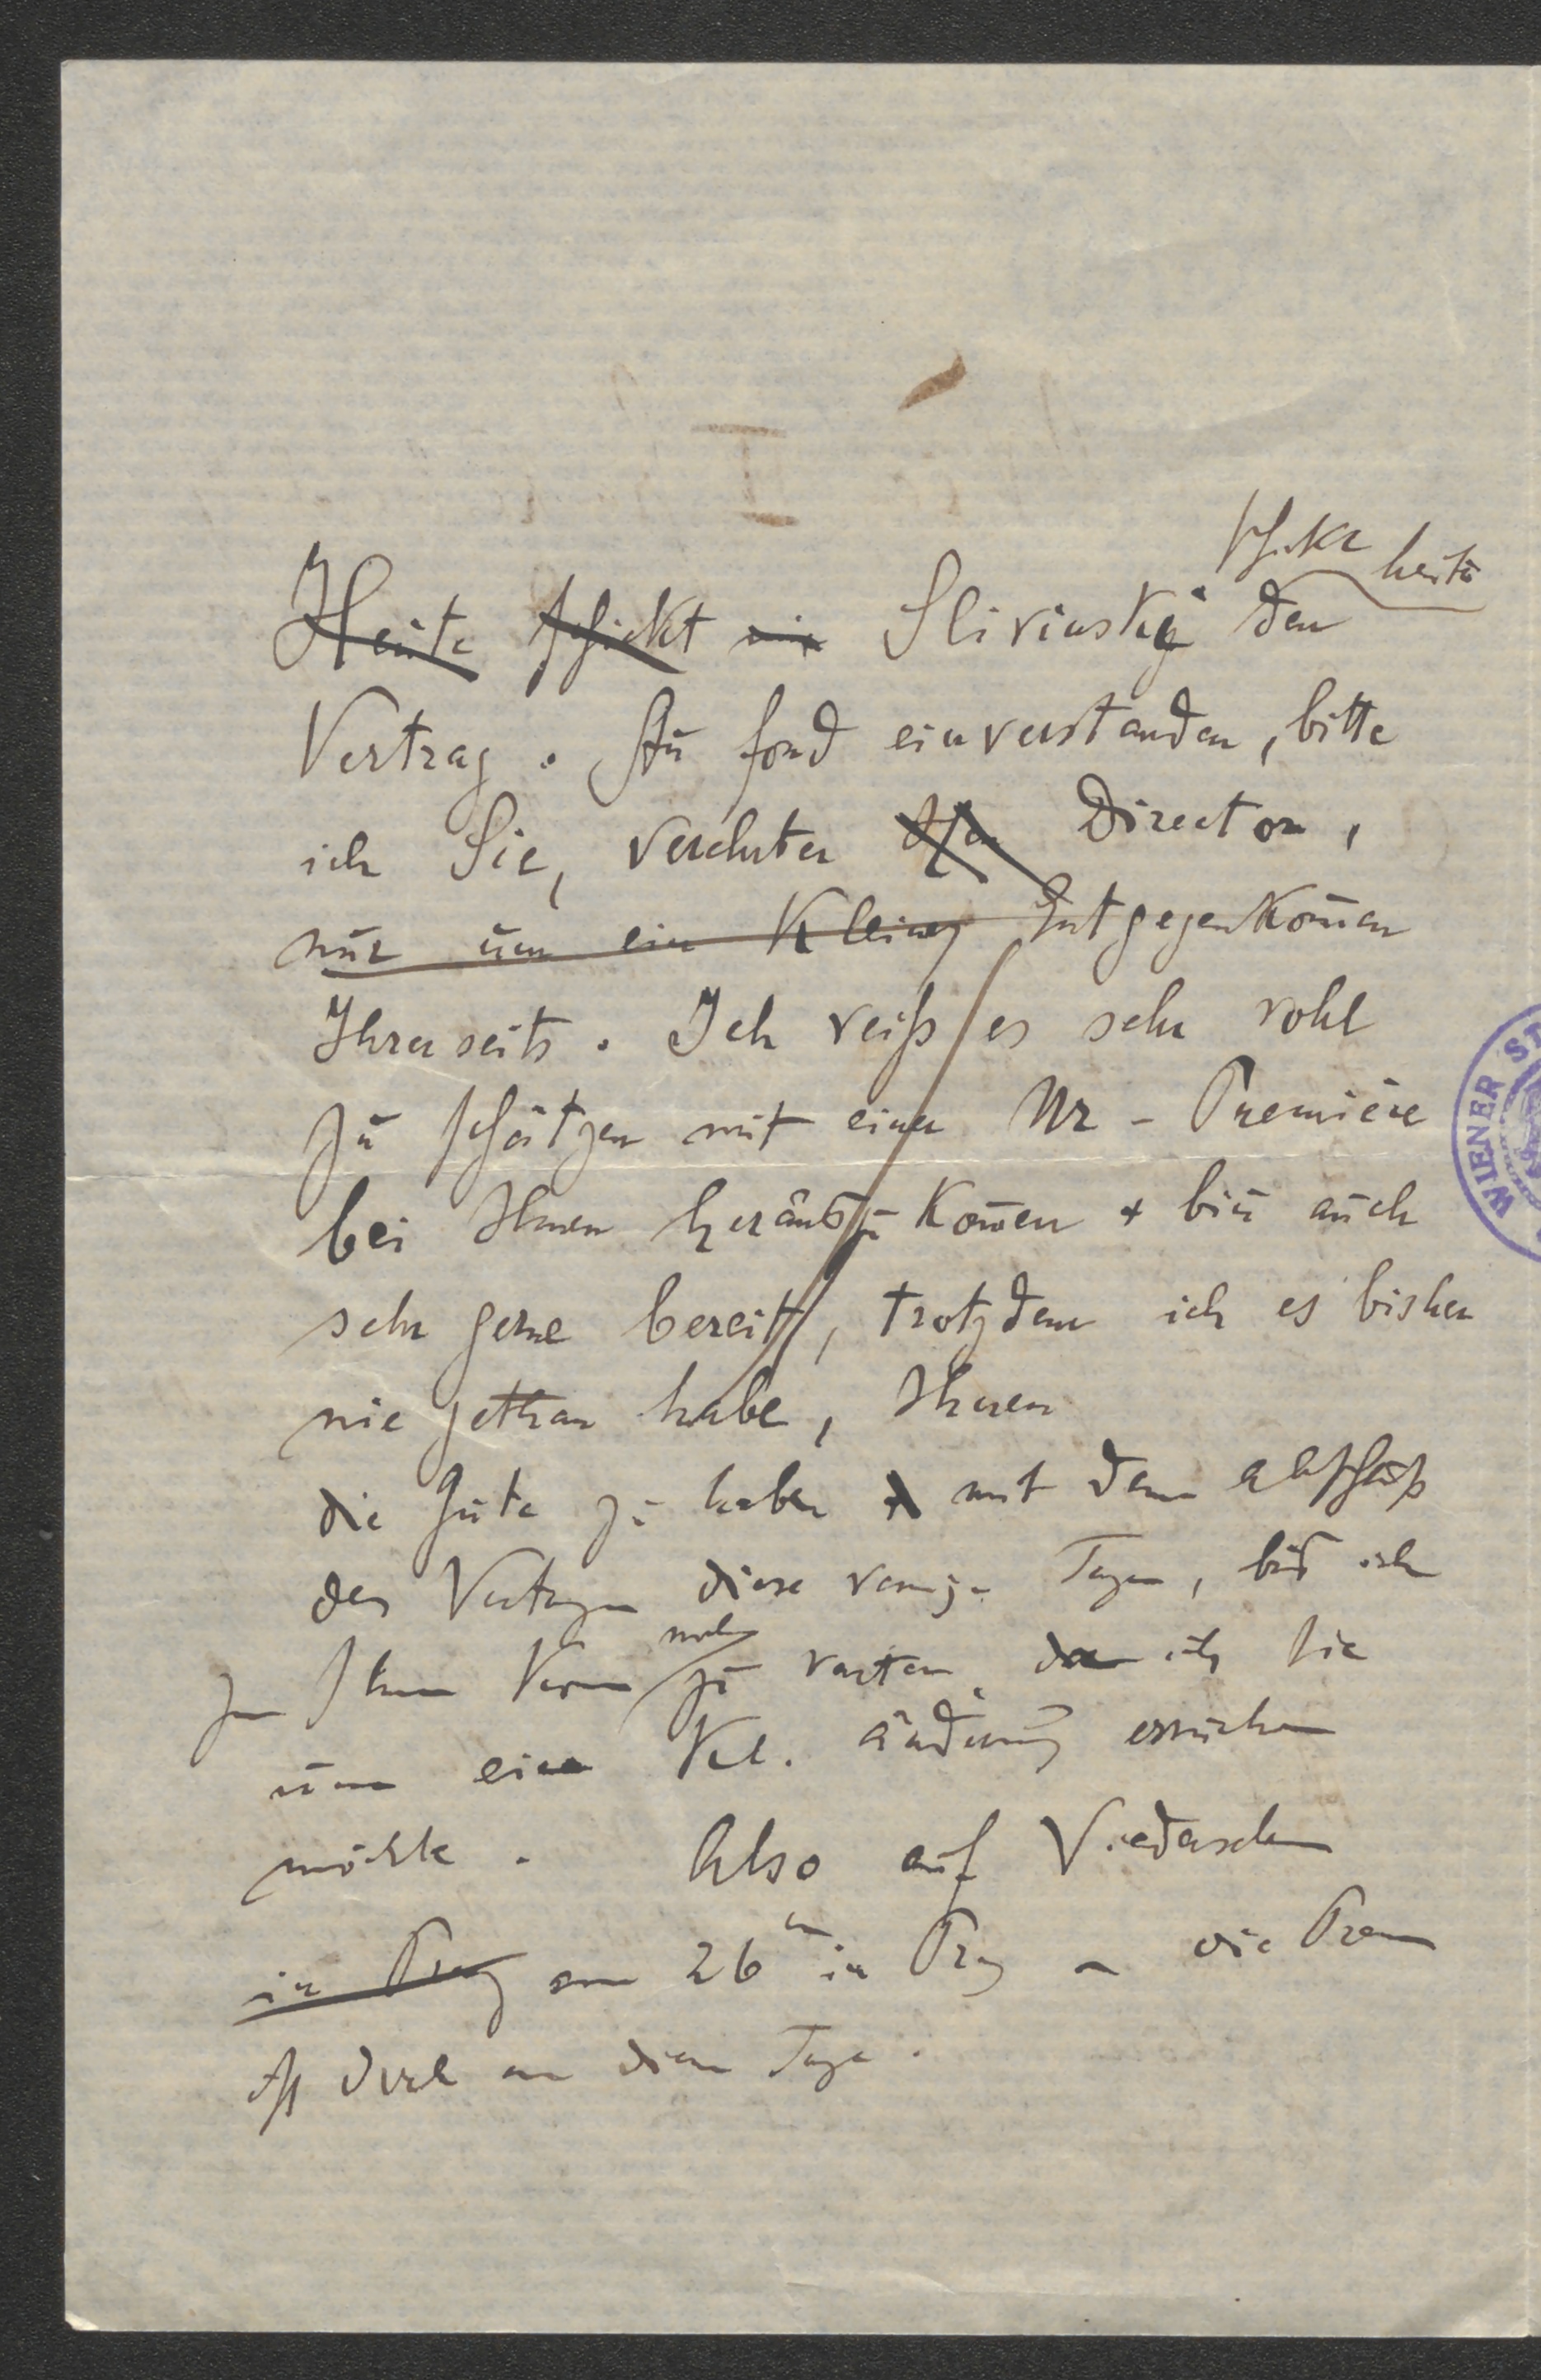 schickt heute
Heute schickt mir Slivinsky den
Vertrag. Au fond einverstanden, bitte
ich Sie, verehrter Herr Director,
nur um ein kleines Entgegenkom̄en
Ihrerseits. Ich weiß es sehr wohl
zu schätzen mit einer Ur-Premiére
bei Ihnen herauszukom̄en + bin auch
sehr gerne bereit, trotzdem ich es bisher
nie gethan habe, Ihnen
die Güte zu haben mit dem Abschluß
des Vertrages diese wenigen Tage, bis ich
zu Ihnen kom̄e noch zu warten da ich Sie
um eine kl. Änderung ersuchen
möchte. Also auf Wiedersehen
in Prag am 26ten in Prag – die Prem
ist doch an diesem Tage.
WIENER ST